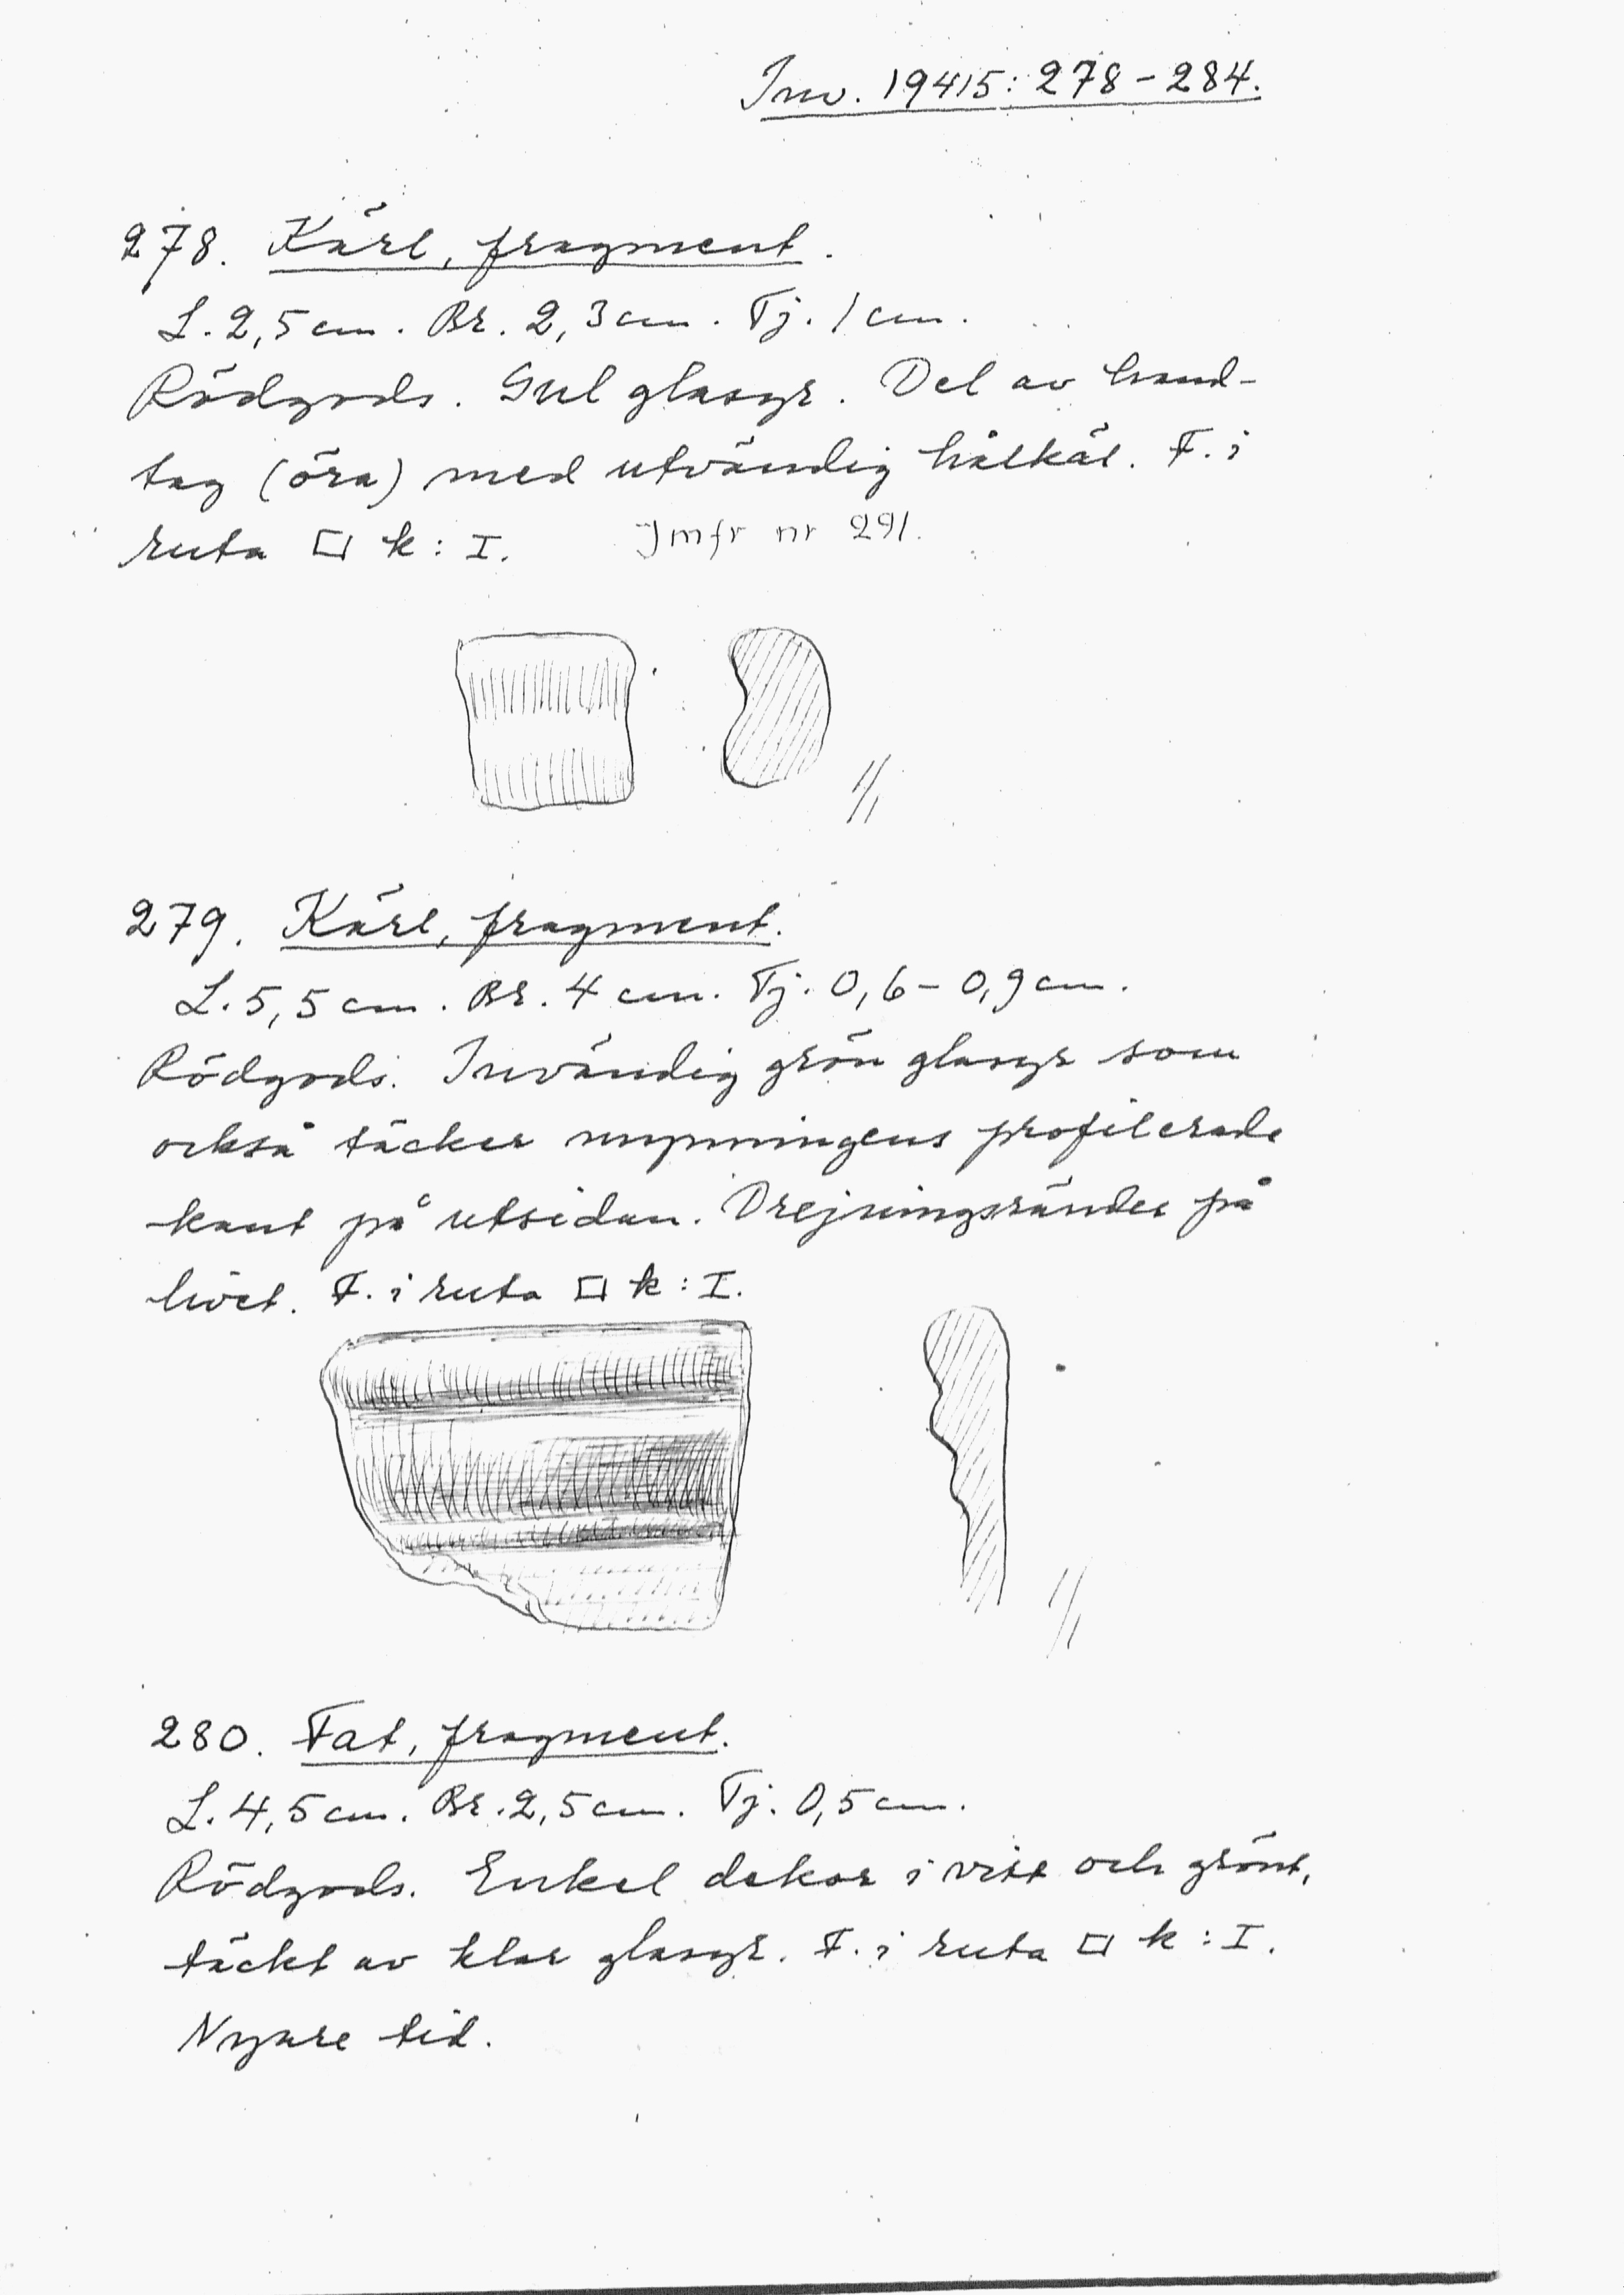 Inv. 19415: 278-284.
278. Kärl, fragment.
L. 2,5 cm. Br. 2,3 cm. Tj. 1 cm.
Rödgods. Gul glasyr. Del av hand-
tag (öra) med utvändig hålkäl. F. i
ruta □ k: I. Jmfr nr 291.
1/1
279. Kärl, fragment.
L. 5,5 cm. Br. 4 cm. Tj. 0,6-0,9 cm.
Rödgods. Invändig grön glasyr som
också täcker mynningens profilerade
kant på utsidan. Drejningsränder på
livet. F. i ruta □ k: I.
1/1
280. Fat, fragment.
L. 4,5 cm. Br. 2,5 cm. Tj. 0,5 cm.
Rödgods. Enkel dekor i vitt och grönt,
täckt av klar glasyr. F. i ruta □ k: I.
Nyare tid.